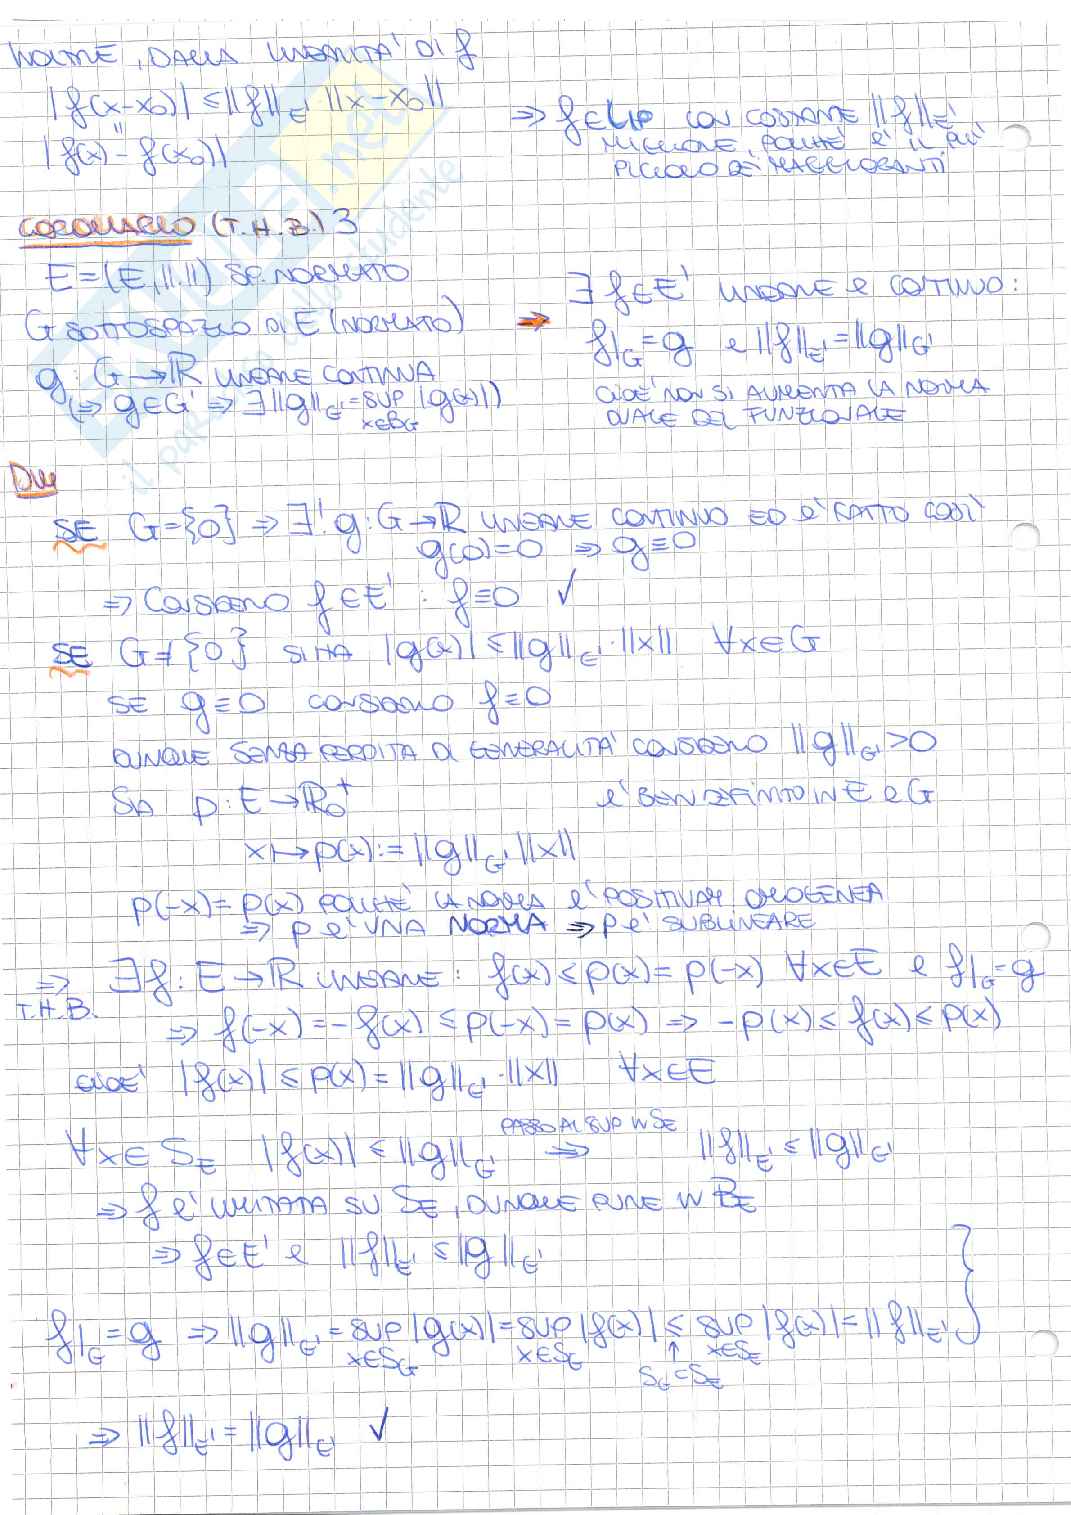 INOLTRE, DALLA LINEARITA' DI f
|f(x-x₀)| ≤ ||f||_E' · ||x-x₀||
"
|f(x) - f(x₀)|
⇒ f ∈ LIP CON COSTANTE ||f||_E'
MIGLIORE, POICHE' E' IL PIU'
PICCOLO DEI MAGGIORANTI
COROLLARIO (T.H.B.) 3
E = (E, ||.||) SP. NORMATO
G SOTTOSPAZIO DI E (NORMATO)
g : G → ℝ LINEARE CONTINUA
(⇒ g ∈ G' ⇒ ∃ ||g||_G' = SUP |g(x)|)
x∈B_G
⇒ ∃ f ∈ E' LINEARE e CONTINUO :
f|_G = g e ||f||_E' = ||g||_G'
CIOE' NON SI AUMENTA LA NORMA
DUALE DEL FUNZIONALE
Dim
SE G = {0} ⇒ ∃! g : G → ℝ LINEARE CONTINUO ED e' FATTO COSI'
g(0) = 0 ⇒ g ≡ 0
⇒ CONSIDERO f ∈ E' : f ≡ 0 ✓
SE G ≠ {0} SI HA |g(x)| ≤ ||g||_G' · ||x|| ∀x∈G
SE g ≡ 0 CONSIDERO f ≡ 0
DUNQUE SENZA PERDITA DI GENERALITA' CONSIDERO ||g||_G' > 0
SIA p : E → ℝ₀⁺ e' BEN DEFINITO IN E e G
x ↦ p(x) := ||g||_G' ||x||
p(-x) = p(x) POICHE' LA NORMA e' POSITIVAM. OMOGENEA
⇒ p e' UNA NORMA ⇒ p e' SUBLINEARE
⇒ ∃ f : E → ℝ LINEARE : f(x) ≤ p(x) = p(-x) ∀x∈E e f|_G = g
T.H.B.
⇒ f(-x) = -f(x) ≤ p(-x) = p(x) ⇒ -p(x) ≤ f(x) ≤ p(x)
CIOE' |f(x)| ≤ p(x) = ||g||_G' · ||x|| ∀x∈E
∀x∈ S_E |f(x)| ≤ ||g||_G' PASSO AL SUP IN S_E ⇒ ||f||_E' ≤ ||g||_G'
⇒ f e' LIMITATA SU S_E, DUNQUE PURE IN B_E
⇒ f ∈ E' e ||f||_E' ≤ ||g||_G'
f|_G = g ⇒ ||g||_G' = SUP |g(x)| = SUP |f(x)| ≤ SUP |f(x)| = ||f||_E'
x∈S_G x∈S_G ↑ x∈S_E
S_G ⊂ S_E
⇒ ||f||_E' = ||g||_G' ✓